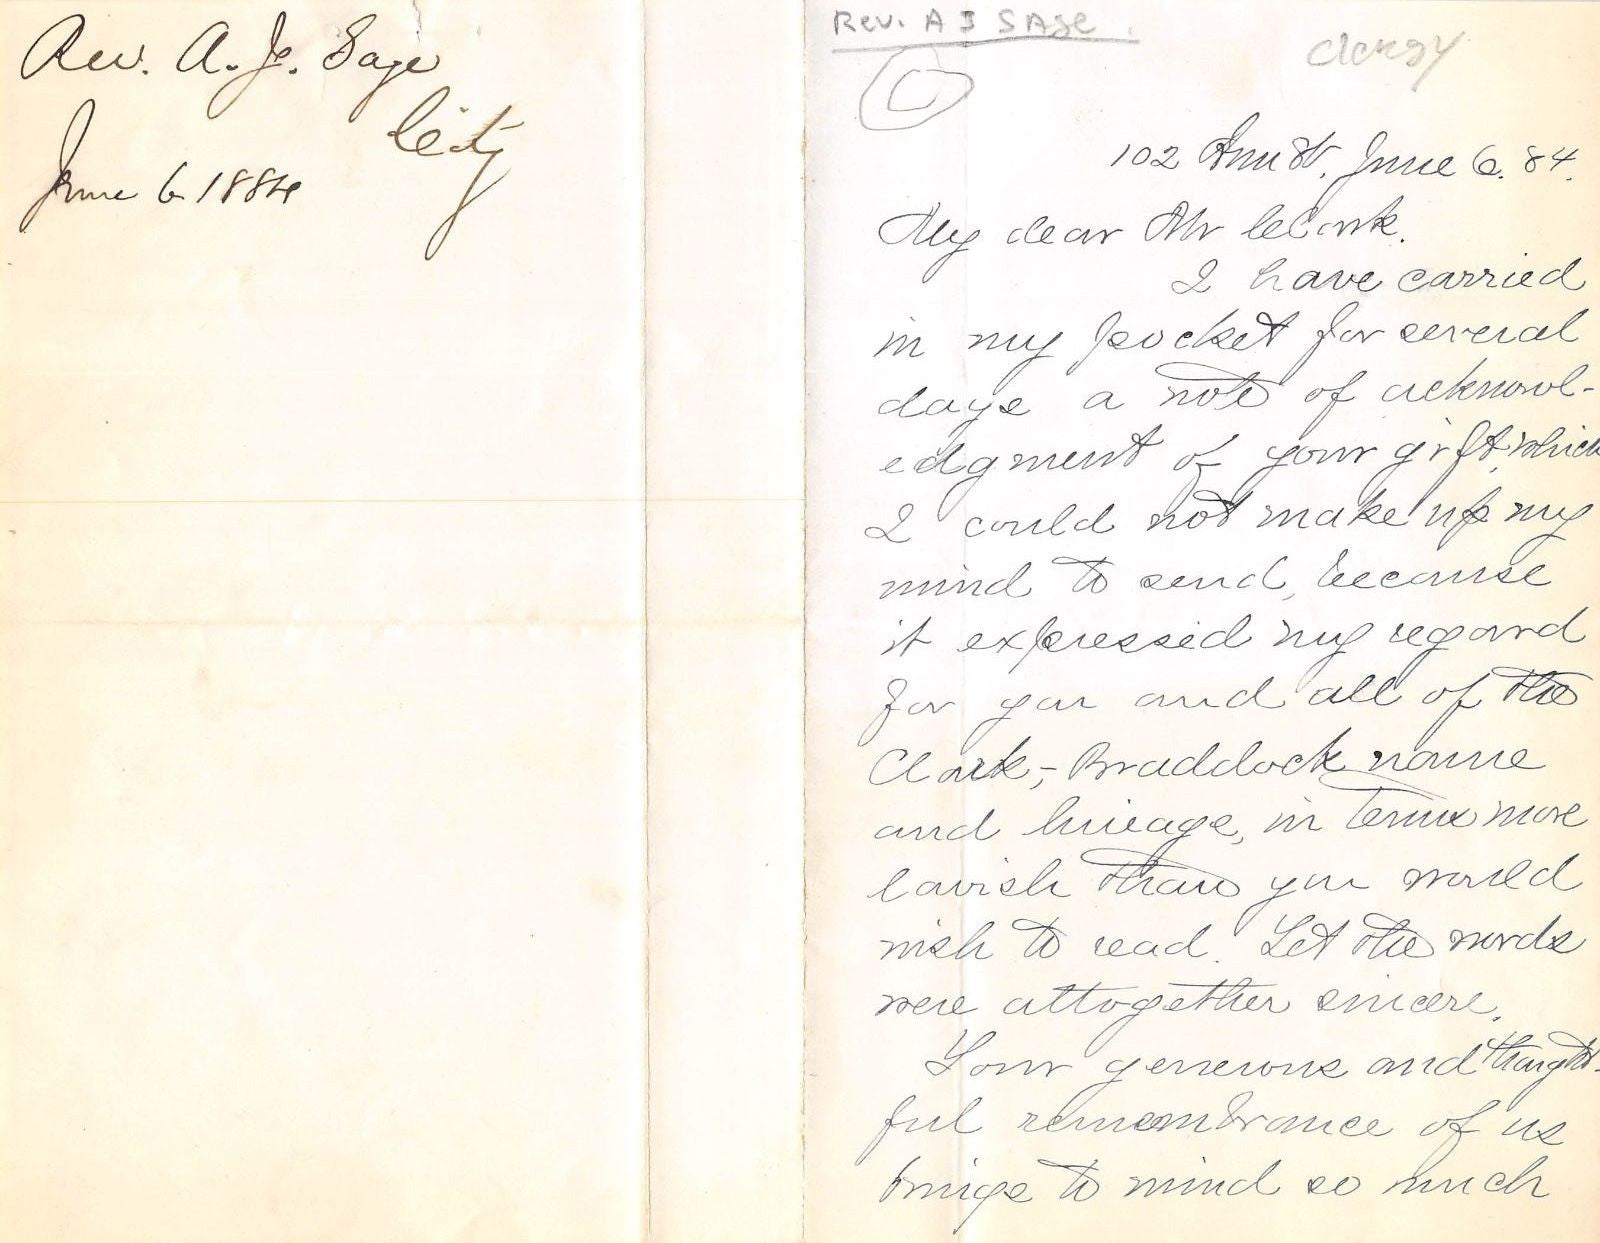 Rev. A. J. Sage
City
June 6 1884
Rev. A J SAge
clergy
102 Ann St. June 6. 84.
My dear Mr Clark.
I have carried
in my pocket for several
days a note of acknowl-
edgment of your gift, which
I could not make up my
mind to send, because
it expressed my regard
for you and all of the
Clark,- Braddock name
and lineage, in terms more
lavish than you would
wish to read. Yet the words
were altogether sincere.
Your generous and thought-
ful remembrance of us
brings to mind so much